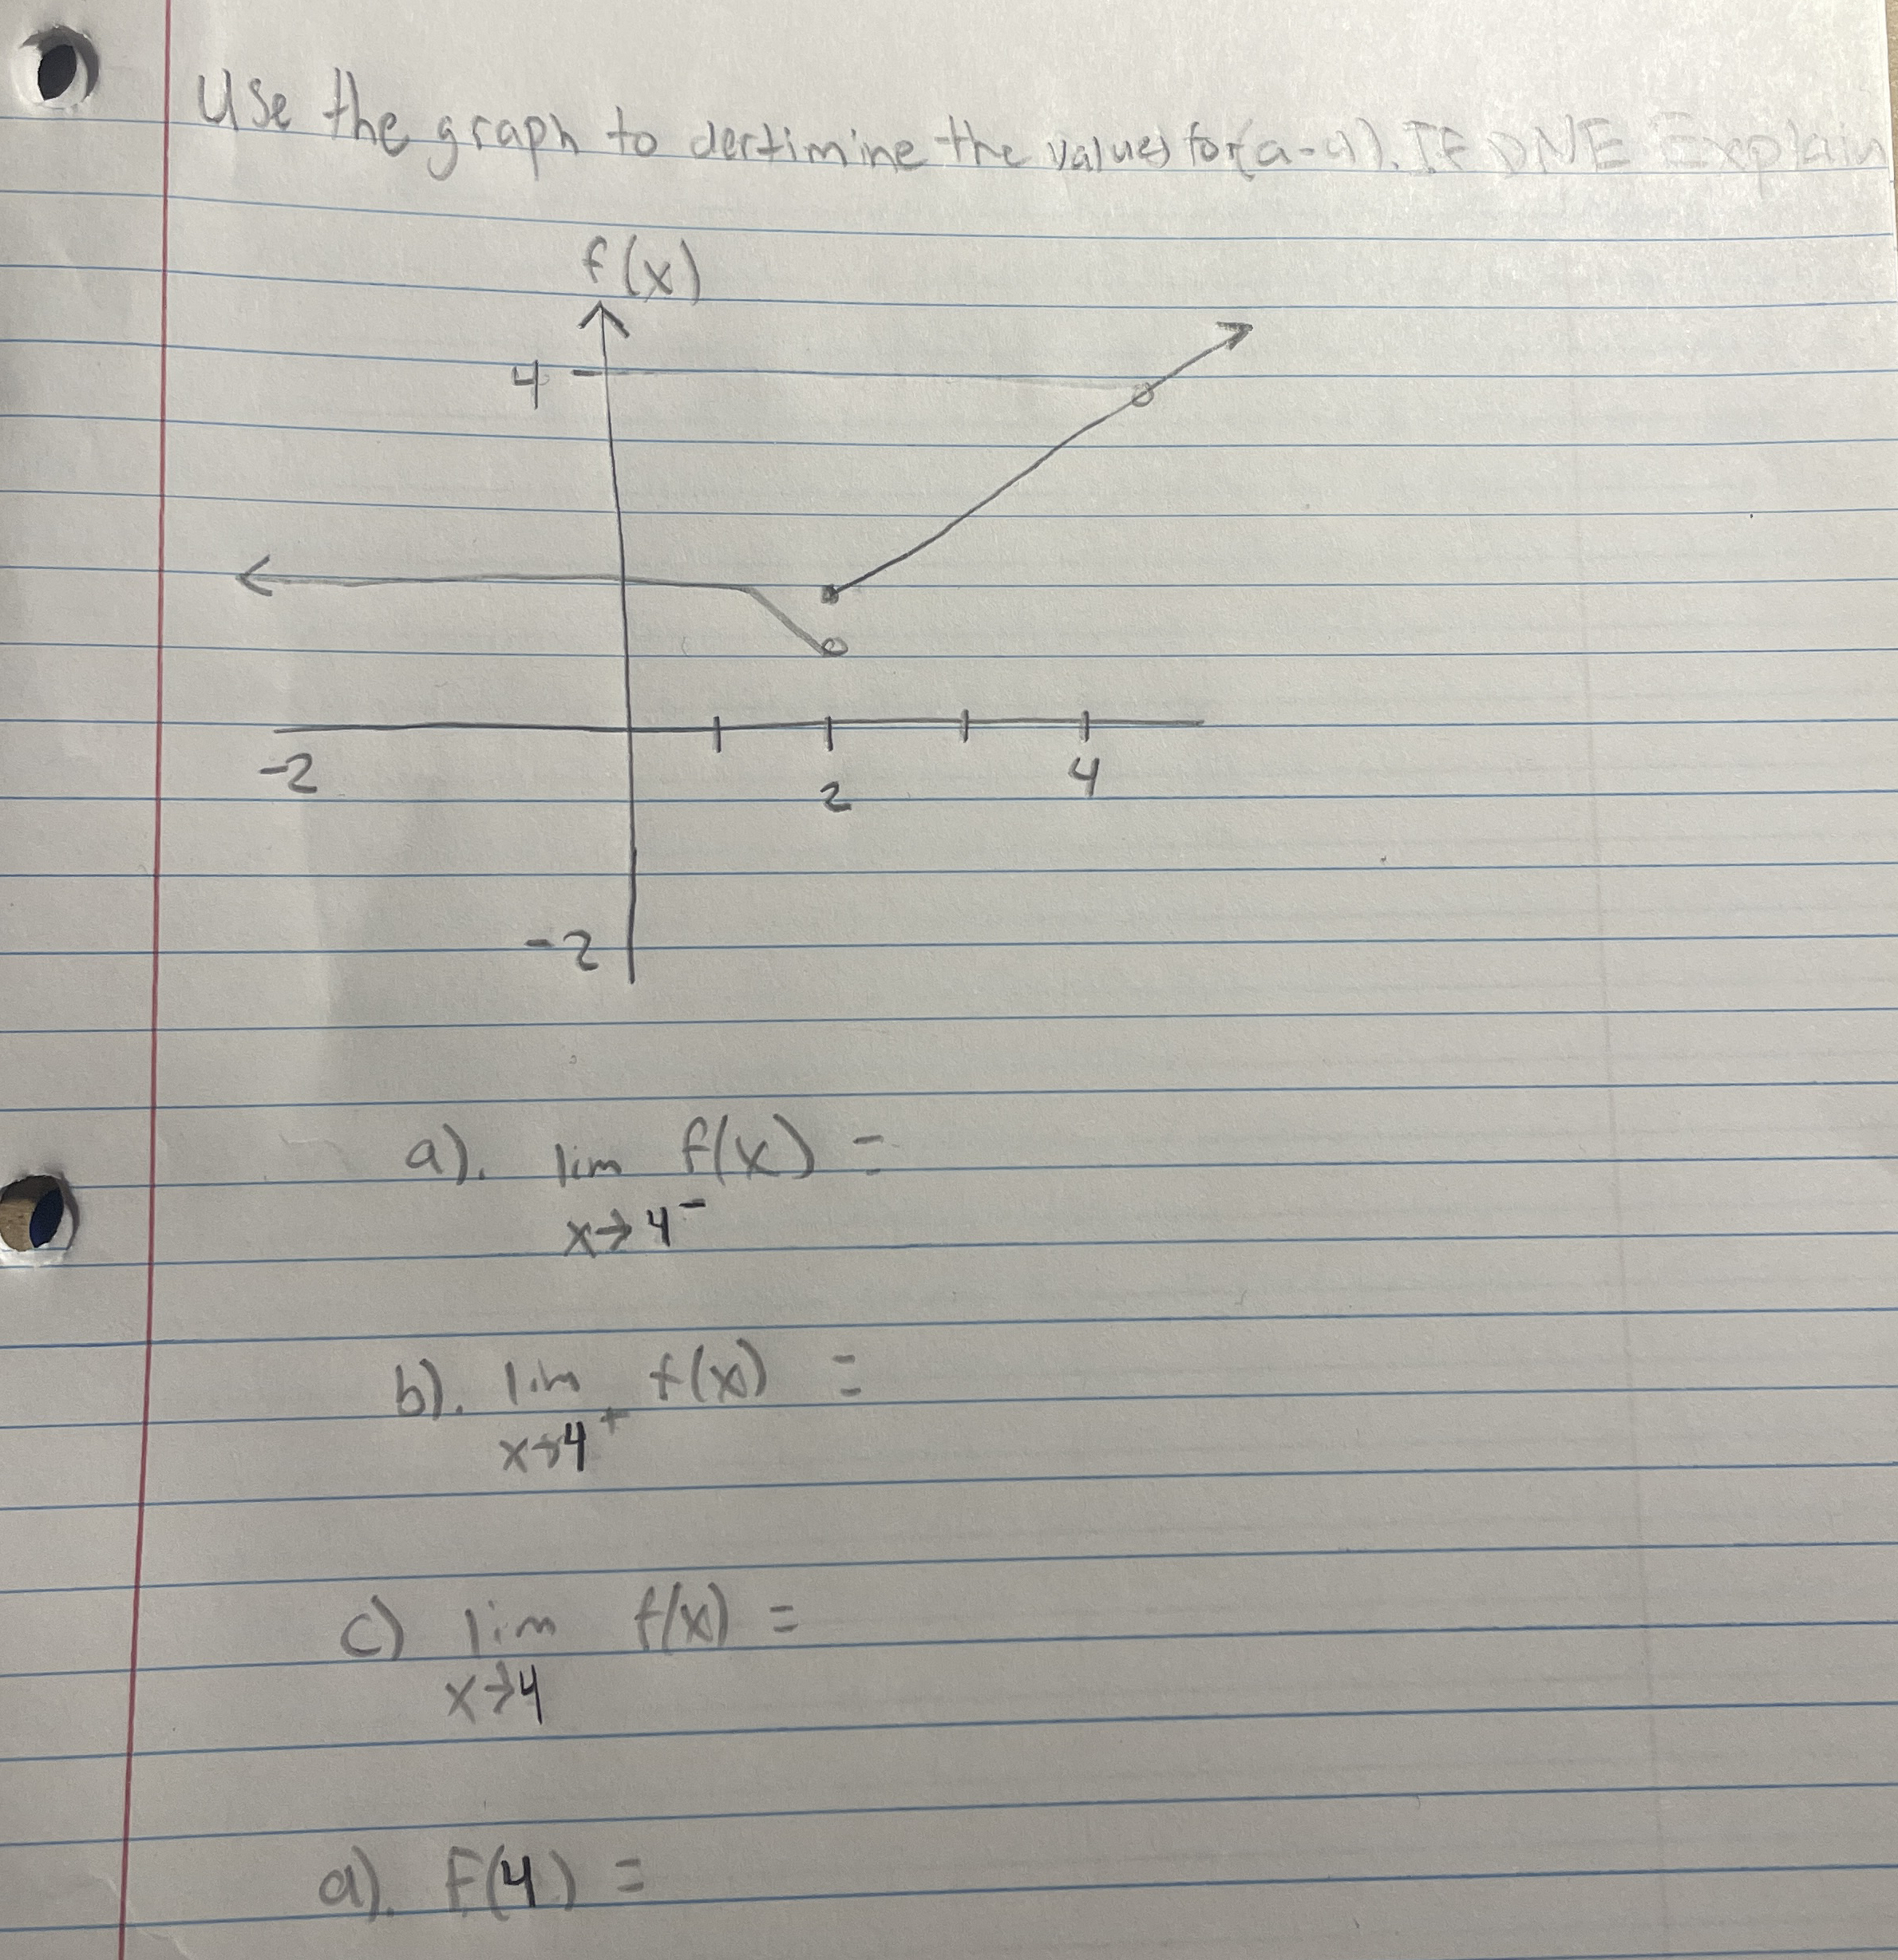 Use the graph to dertimine the values for (a-d). If DNE Explain
f(x)
4
-2
2
4
-2
a). lim f(x) =
x→4⁻
b). lim f(x) =
x→4⁺
c) lim f(x) =
x→4
d). F(4) =